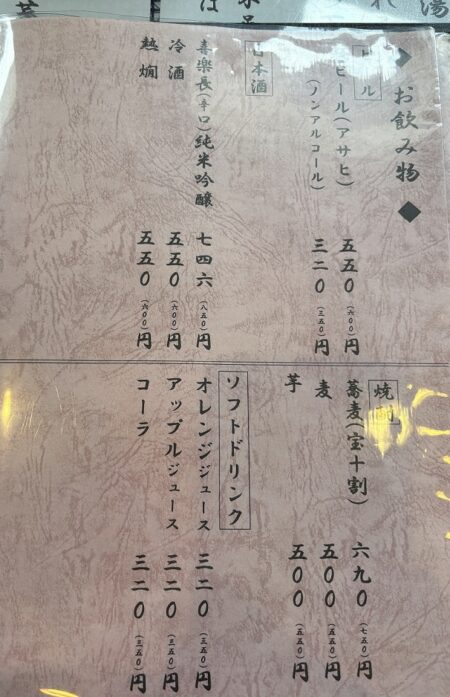 ◆お飲み物◆
ビール
ビール(アサヒ) 五五〇(六〇〇)円
(ノンアルコール) 三二〇(三五〇)円
日本酒
喜楽長(辛口)純米吟醸 七四六(八五〇)円
冷酒 五五〇(六〇〇)円
熱燗 五五〇(六〇〇)円
焼酎
蕎麦(宝十割) 六九〇(七五〇)円
麦 五〇〇(五五〇)円
芋 五〇〇(五五〇)円
ソフトドリンク
オレンジジュース 三二〇(三五〇)円
アップルジュース 三二〇(三五〇)円
コーラ 三二〇(三五〇)円